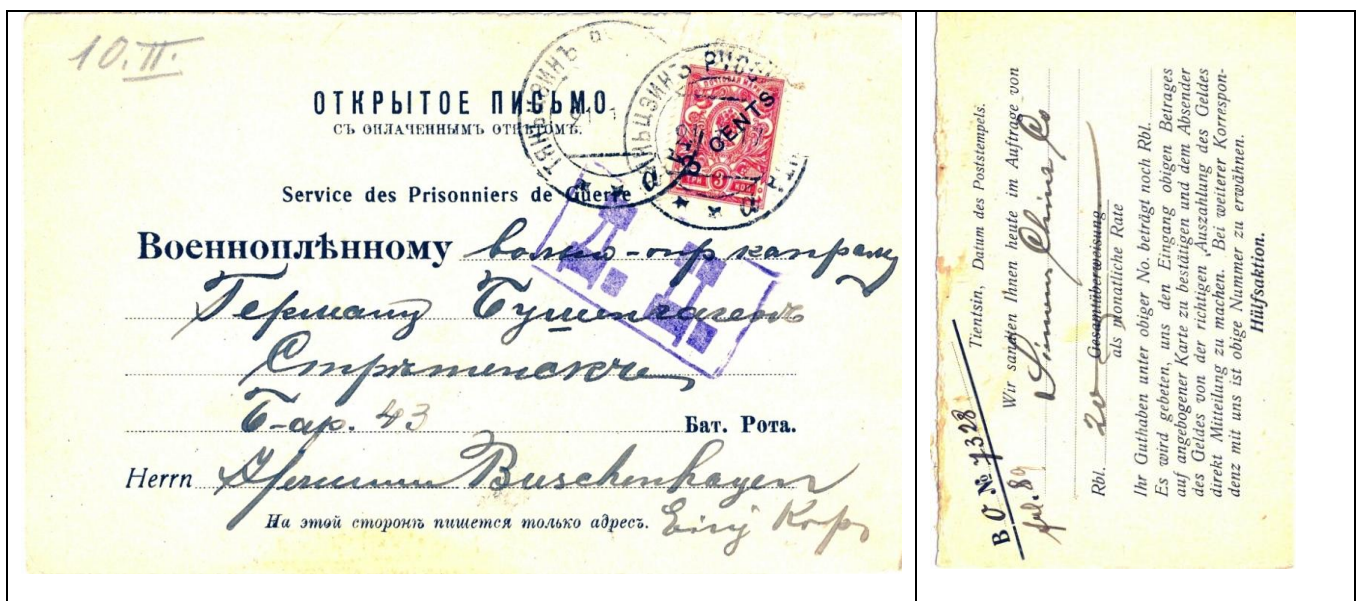 10.II.
ОТКРЫТОЕ ПИСЬМО
СЪ ОПЛАЧЕННЫМЪ ОТВѢТОМЪ.
ТЯНЬЦЗИНЪ
НЬЦЗИНЪ
3 CENTS
ТРИ 3 КОП
Service des Prisonniers de Guerre
Военноплѣнному вольно-опр капралу
Герману Бушенгагенъ
Стрѣтенскъ
Б-ар. 43 Бат. Рота.
Д. Ц.
Herrn Hermann Buschenhagen
На этой сторонѣ пишется только адресъ.
Einj Korp
B O № 7328
fol. 89
Tientsin, Datum des Poststempels.
Wir sandten Ihnen heute im Auftrage von
China Co
Rbl. 20 Gesamtüberweisung
als monatliche Rate
Ihr Guthaben unter obiger No. beträgt noch Rbl.
Es wird gebeten, uns den Eingang obigen Betrages
auf angebogener Karte zu bestätigen und dem Absender
des Geldes von der richtigen Auszahlung des Geldes
direkt Mitteilung zu machen. Bei weiterer Korrespon-
denz mit uns ist obige Nummer zu erwähnen.
Hülfsaktion.